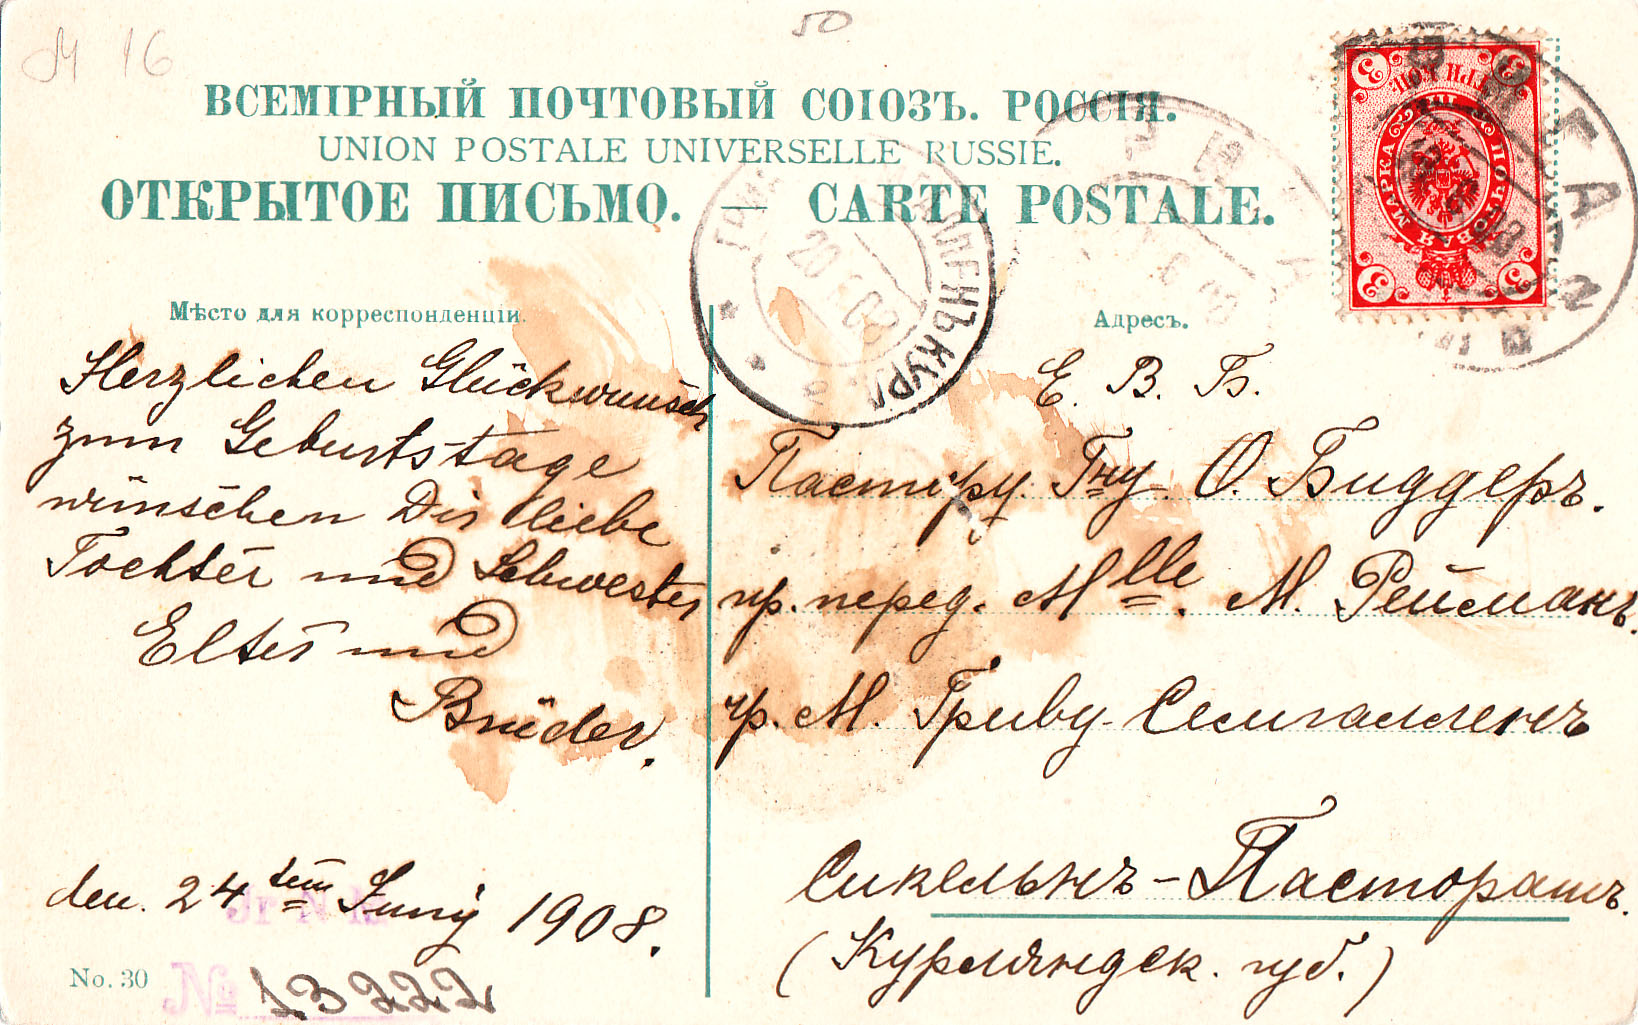 М 16
50
ВСЕМІРНЫЙ ПОЧТОВЫЙ СОЮЗЪ. РОССІЯ.
UNION POSTALE UNIVERSELLE RUSSIE.
ОТКРЫТОЕ ПИСЬМО. — CARTE POSTALE.
Мѣсто для корреспонденціи.
Адресъ.
Herzlichen Glückwunsch
zum Geburts-tage
wünschen Dir liebe
Tochter und Schwester
Elter und
Brüder.
den. 24tem Juny 1908.
Jr N
No. 30
№ 13222
Е. В. Б.
Пастору Гну. О. Биддеръ.
пр. перед. Mlle. М. Рейманъ.
чр. М. Гриву-Семгалленъ
Сикельнъ-Пасторатъ.
(Курляндск. губ.)
3 3
ПОЧТОВАЯ МАРКА
3 3
РИГА
РИГА 2
20 6 08
ГРИВА СЕМГАЛЕНЪ КУРЛ.